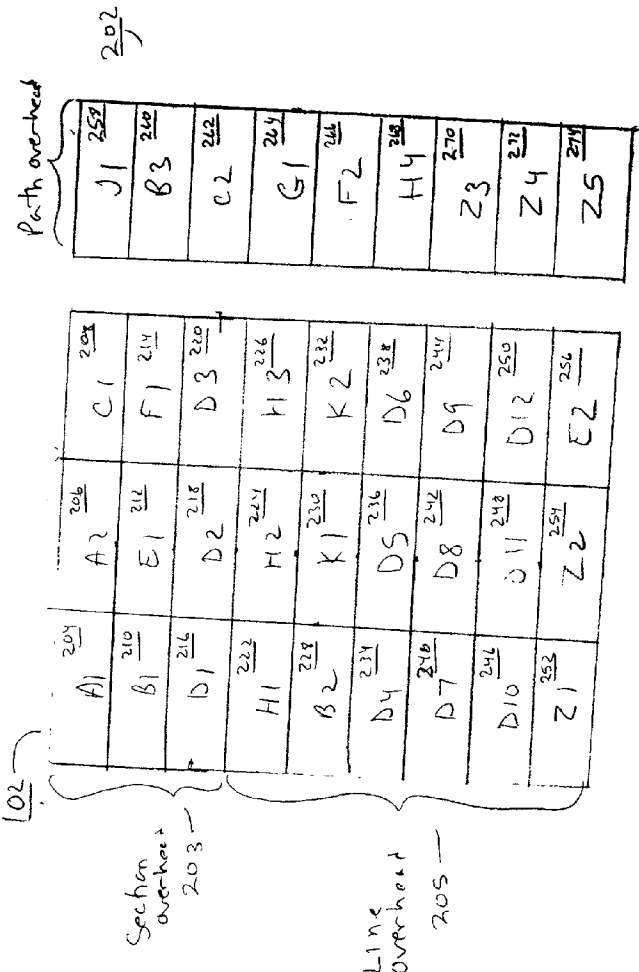 102
202
Path overhead
Section overhead
203
Line overhead
205
A1 204 A2 206 C1 208
B1 210 E1 212 F1 214
D1 216 D2 218 D3 220
H1 222 H2 224 H3 226
B2 228 K1 230 K2 232
D4 234 D5 236 D6 238
D7 240 D8 242 D9 244
D10 246 D11 248 D12 250
Z1 252 Z2 254 E2 256
J1 258
B3 260
C2 262
G1 264
F2 266
H4 268
Z3 270
Z4 272
Z5 274